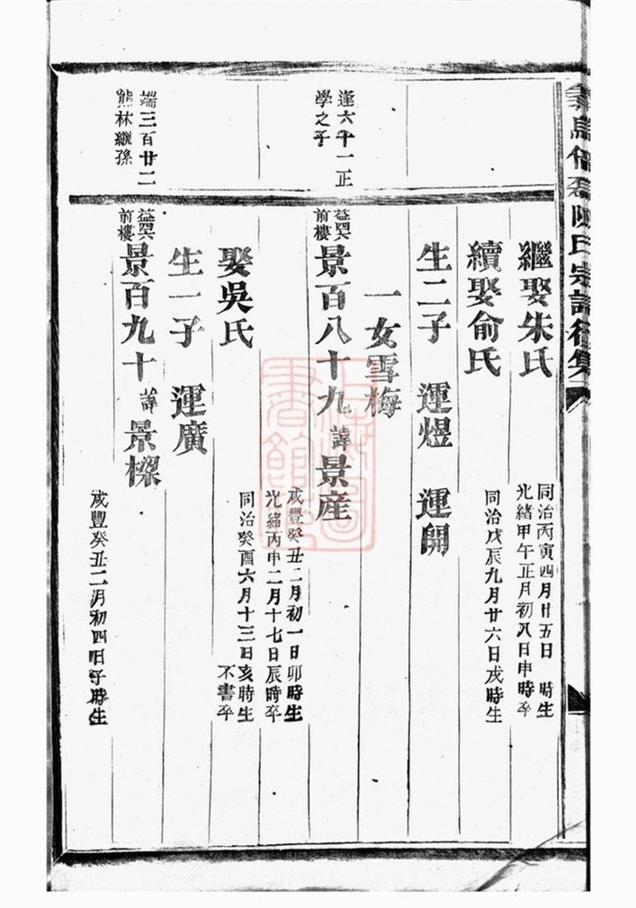 陳氏宗譜
繼娶朱氏
同治丙寅四月廿五日 時生
光緒甲午正月初八日申時卒
續娶俞氏
同治戊辰九月廿六日戌時生
生二子 運煜 運開
一女雪梅
逢六千一正
學之子
前樓
景百八十九 諱 景産
咸豐癸丑二月初一日卯時生
光緒丙申二月十七日辰時卒
娶吳氏
同治癸酉六月十三日亥時生
不書卒
生一子 運廣
端三百廿二
熊林繼孫
前樓
景百九十 諱 景樑
咸豐癸丑二月初四日子時生